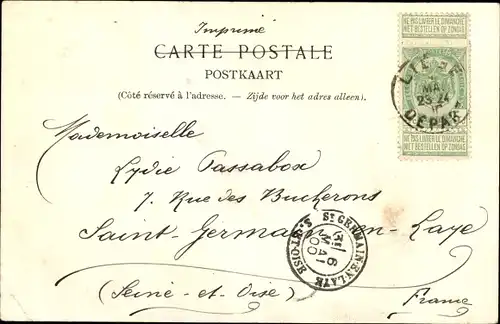 Imprimé
CARTE POSTALE
POSTKAART
(Côté réservé à l'adresse. — Zijde voor het adres alleen).
NE PAS LIVRER LE DIMANCHE
NIET BESTELLEN OP ZONDAG
NE PAS LIVRER LE DIMANCHE
NIET BESTELLEN OP ZONDAG
MAI
DEPART
Mademoiselle
Lydie Passabox
7. Rue des Bucherons
Saint-Germain-en-Laye
(Seine-et-Oise)
France
ST GERMAIN-EN-LAYE
6
MAI
00
S.-ET-OISE